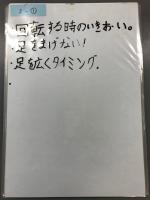 2-①
・回転する時のいきおい。
・足をまげない！
・足を広くタイミング.